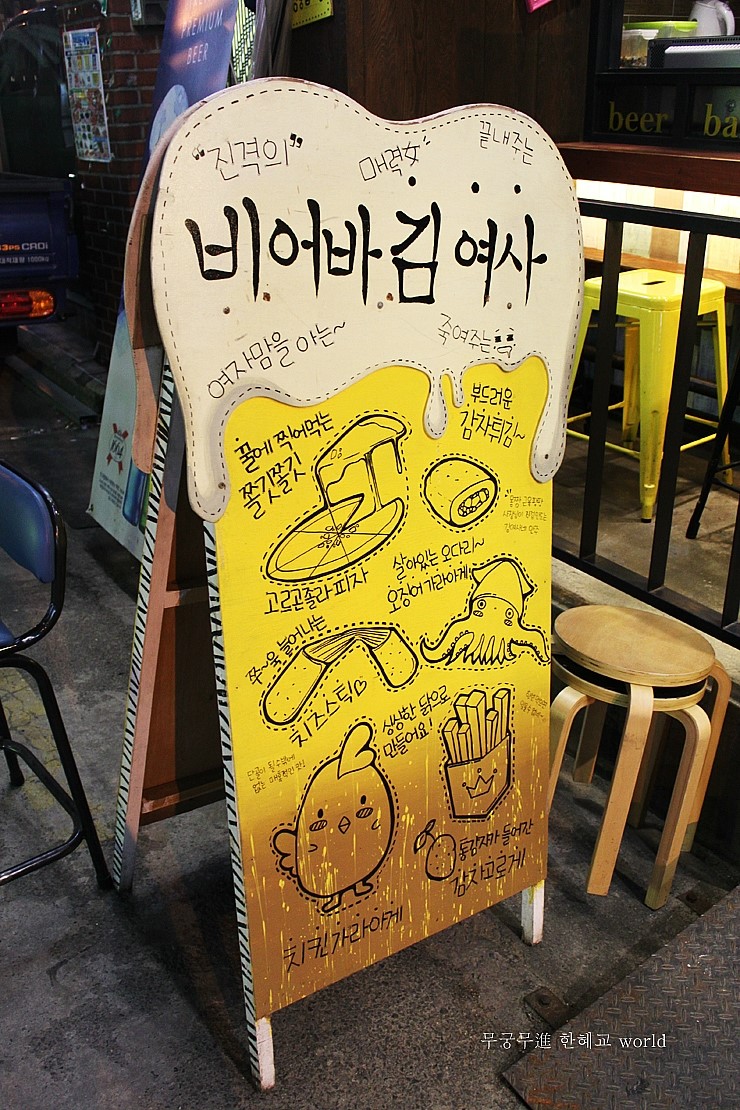 PREMIUM
BEER
beer
ba
CRDi
"진격의"
매력女
끝내주는
비어바 김여사
여자맘을 아는~
죽여주는
꿀에 찍어먹는
쫄깃쫄깃
고르곤졸라 피자
부드러운
감자튀김~
살아있는 오다리~
오징어 가라아게
쭈~욱 늘어나는
치즈스틱
싱싱한 닭으로
만들어요!
단골이 될수밖에
없는 마을적인 맛!
치킨 가라아게
통감자가 들어간
감자고로케
1664
무궁무進 한혜교 world